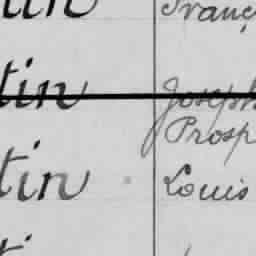 tin Franç
tin Joseph
Prosp
tin Louis